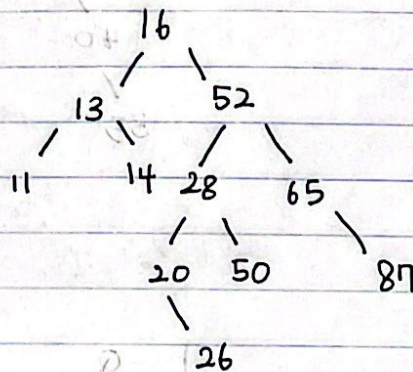 16
13 52
11 14 28 65
20 50 87
26